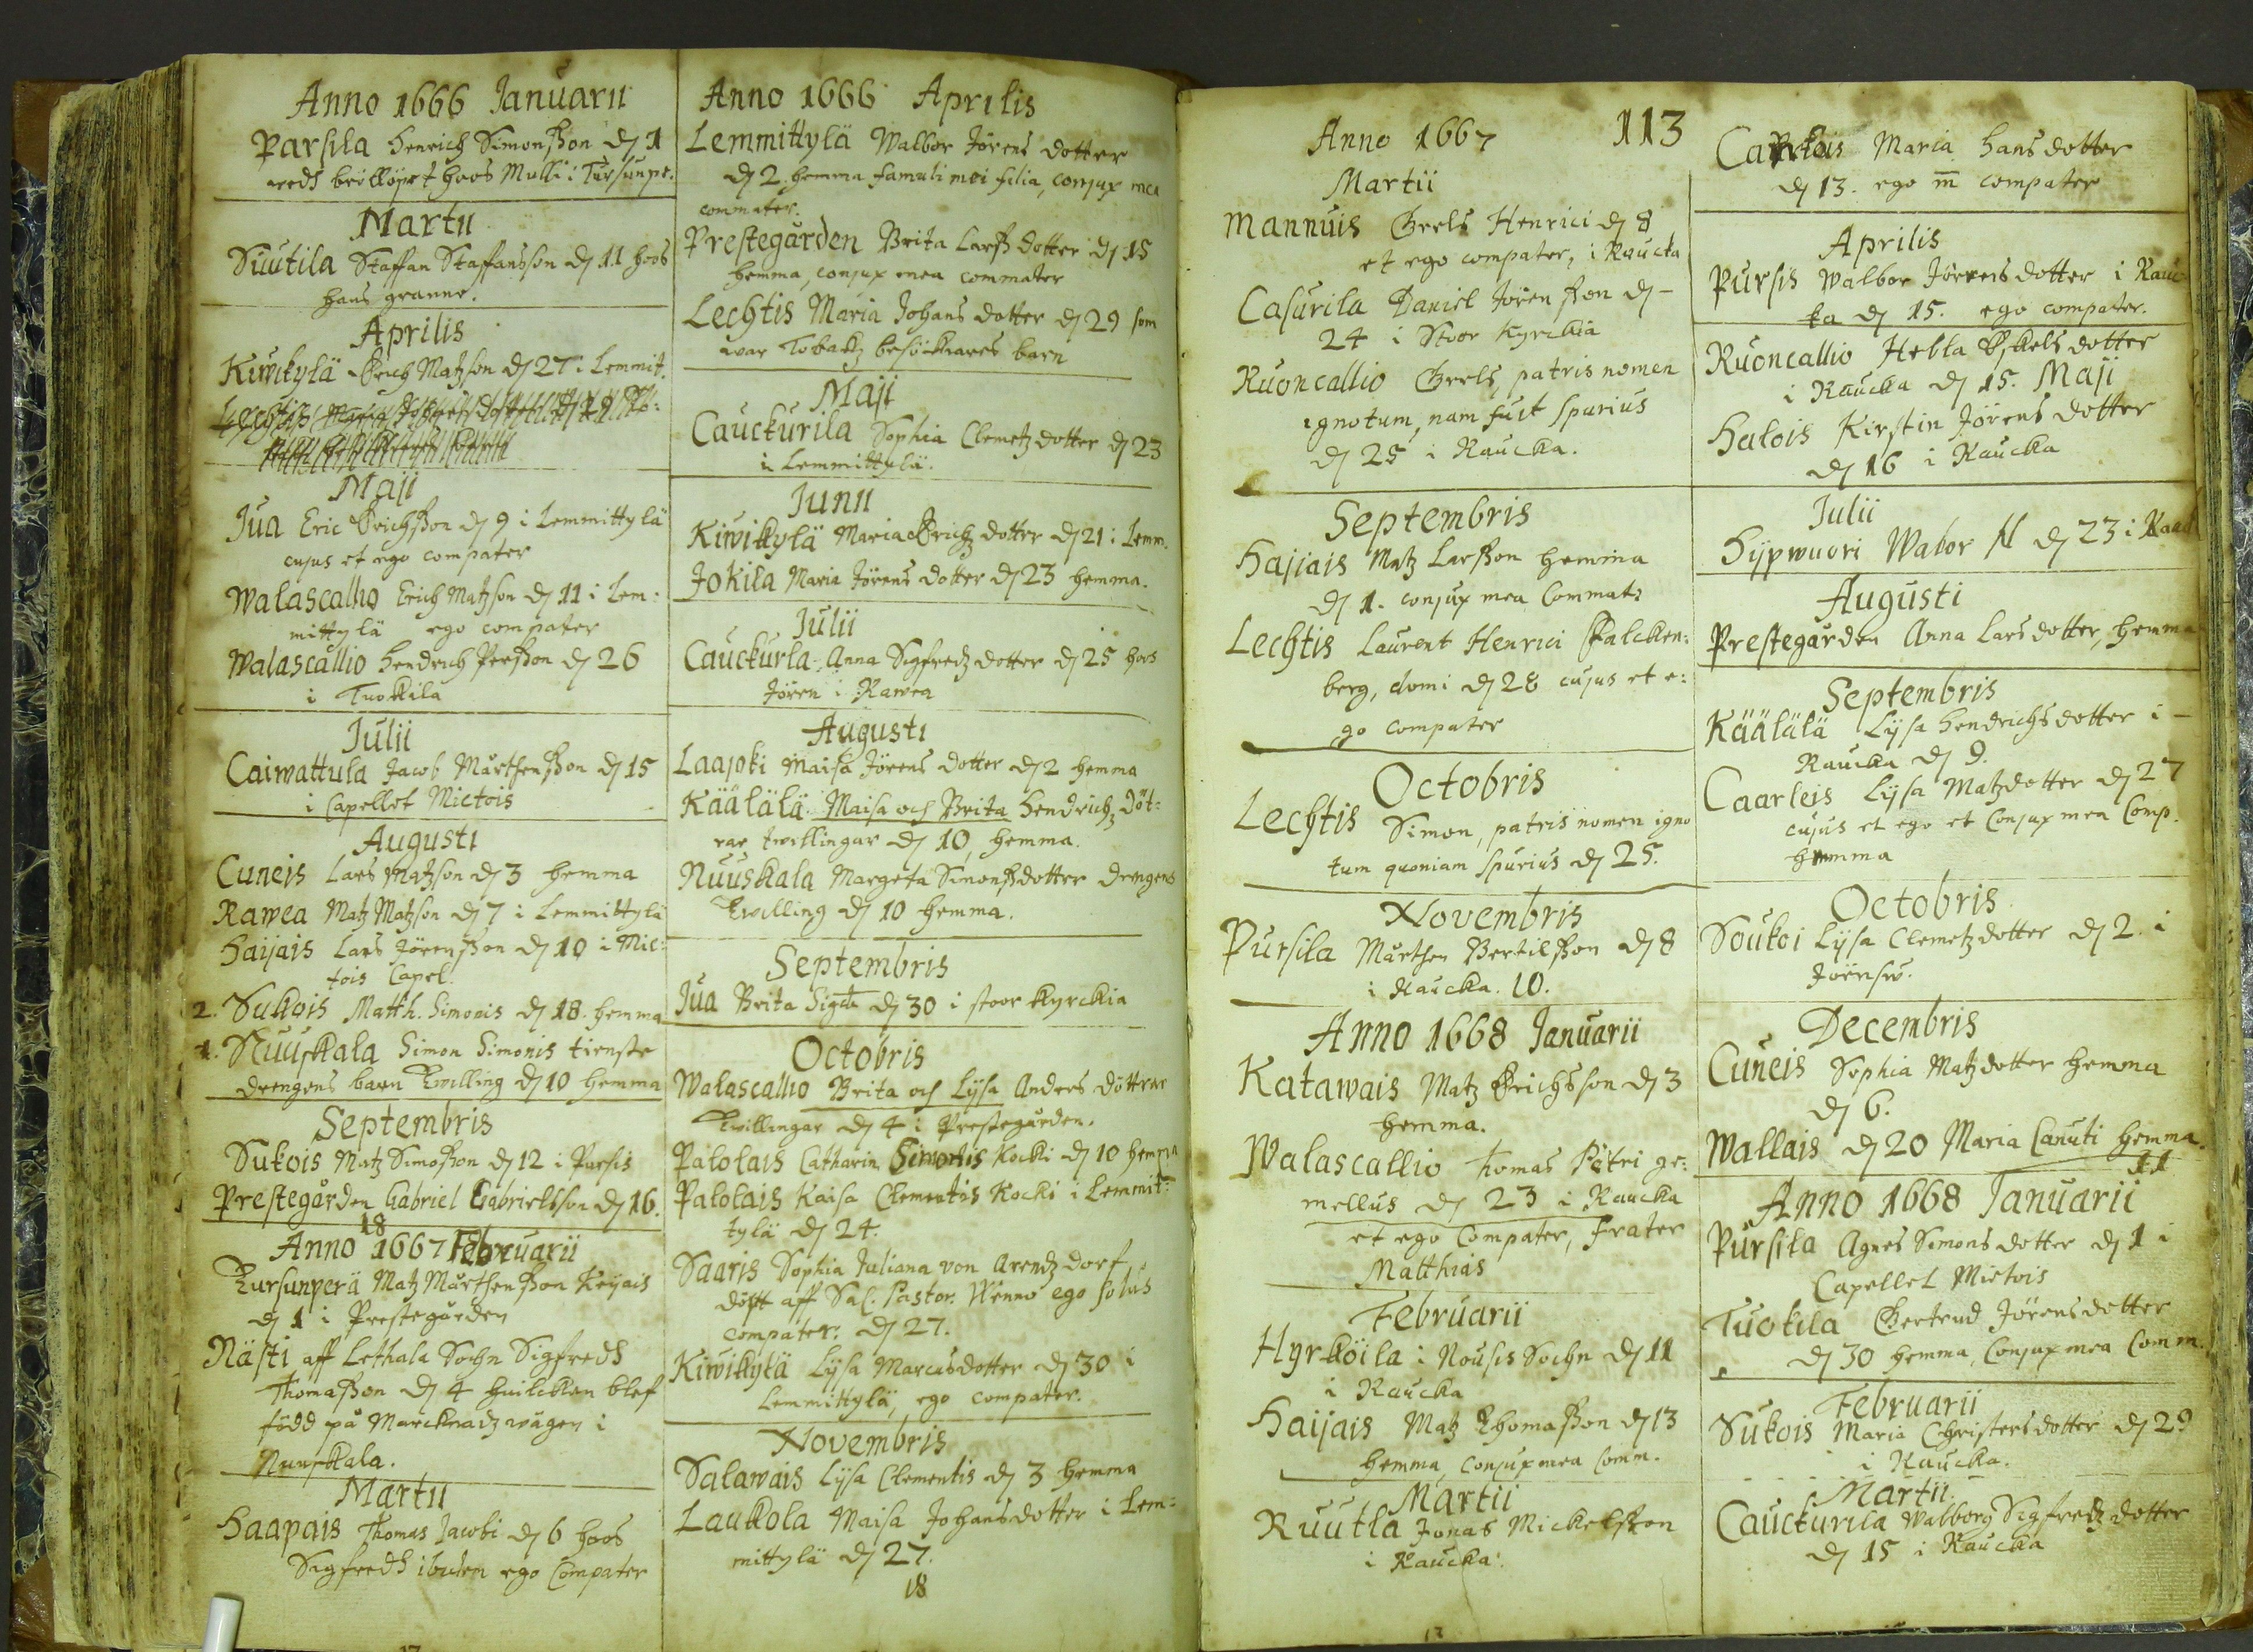 Anno 1666 Januarii
Parsila Henrich Simonßon dj 1
weds bröllöpet hoos Mulli i Tursunpe.
Martii
Suutila Staffan Staffansson dj 11 hoos
hans granne.
Aprilis
Kiwikylä Erich Matzson dj 27 i Lemmit.
Lechtis Maria Johans dotter dj 29
Maji
Jua Eric Erichßon dj 9 i Lemmittylä
cujus et ego compater
Walascallio Erich Matzson dj 11 i Lem:
mittylä ego compater
Walascallio Hendrich Perßon dj 26
i Tuokila
Julii
Caiwattula Jacob Mårthenßon dj 15
i Capellet Mietois
Augusti
Cuneis Lars Matzson dj 3 hemma
Rawea Matz Matzson dj 7 i Lemmittylä
Haijais Lars Jörenßon dj 10 i Mie:
tois Capel.
2. Sukois Matth. Simonis dj 18. hemma
1. Nuuskala Simon Simonis tienste
drengens barn Twilling dj 10 hemma
Septembris
Sukois Matz Simoßon dj 12 i Pursis
Prestegården Gabriel Gabrielsson dj 16.
18
Anno 1667 Februarii
Tursunperä Matz Mårthenßon Keijais
dj 1 i Prestegården
Nästi aff Lethala Sochn Sigfreds
Thomaßon dj 4 huilcken blef
född på Marcknadz wägen i
Nuuskala.
Martii
Haapais Thomas Jacobi dj 6 hoos
Sigfreds ibidem ego Compater
Anno 1666 Aprilis
Lemmittylä Walbor Jörens dotter
dj 2. hemma famuli mei filia, conjux mea
commater.
Prestegården Brita Larß dotter dj 15
hemma, conjux mea commater
Lechtis Maria Johans dotter dj 29 som
war Tobackz besökares barn
Maji
Cauckurila Sophia Clemetz dotter dj 23
i Lemmittylä.
Junii
Kiwikylä Maria Erichz dotter dj 21 i Lemm.
Jokila Maria Jörens dotter dj 23 hemma.
Julii
Cauckurla Anna Sigfredz dotter dj 25 hos
Jören i Rawea
Augusti
Laajoki Maisa Jörens dotter dj 2 hemma
Käälälä Maisa och Brita Hendrichz döt:
rar twillingar dj 10, hemma.
Nuuskala Margeta Simonßdotter drengens
Twilling dj 10 hemma.
Septembris
Jua Brita Sigdr dj 30 i stoor kyrckia
Octobris
Walascallio Brita och Lysa Anders döttrar
Twillingar dj 4 i Prestegården.
Palolais Catharin Simonis Kocki dj 10 hemma
Palolais Kaisa Clementis Kocki i Lemmit:
tylä dj 24.
Saaris Sophia Juliana von Arendz dorf,
döpt aff Sal. Pastor. Wenno ego solus
compater. dj 27.
Kiwikylä Lysa Marcusdotter dj 30 i
Lemmittylä, ego compater.
Novembris
Salawais Lysa Clementis dj 3 hemma
Laukola Maisa Johansdotter i Lem:
mittylä dj 27.
18
113
Anno 1667
Martii
Mannuis Greels Henrici dj 8
et ego compater, i Raucka
Casurila Daniel Jörenßon dj –
24 i Stoor Kyrckia
Ruoncallio Greels, patris nomen
ignotum, nam fuit spurius
dj 25 i Raucka.
Septembris
Hajiais Matz Larßson hemma
dj 1. conjux mea Commat:
Lechtis Laurent Henrici Falcken:
berg, domi dj 28 cujus et e:
go compater
Octobris
Lechtis Simon, patris nomen igno
tum quoniam spurius dj 25.
Novembris
Pursila Mårthen Bertilßon dj 8
i Raucka. 10.
Anno 1668 Januarii
Katawais Matz Erichsson dj 3
hemma.
Walascallio Thomas Petri ge:
mellus dj 23 i Raucka
et ego Compater, Frater
Matthias
Februarii
Hyrköila i Nousis Sochn dj 11
i Raucka
Haijais Matz Thomaßon dj 13
hemma, conjux mea Comm.
Martii
Ruutla Jonas Mickelßon
i Raucka.
Carleis Maria Hans dotter
dj 13. ego m compater
Aprilis
Pursis Walbor Jörens dotter i Rauc
ka dj 15. ego compater.
Ruoncallio Hebla Eskels dotter
i Raucka dj 15. Maji
Halois Kirstin Jörens dotter
dj 16 i Raucka
Julii
Hypwuori Wabor N dj 23 i Rauc
Augusti
Prestegården Anna Lars dotter, hemma
Septembris
Käälälä Lysa Hendrichs dotter i –
Raucka dj 9.
Caarleis Lysa Matzdotter dj 27
cujus et ego et Conjux mea Comp.
hemma
Octobris
Soukoi Lysa Clemetz dotter dj 2. i
Decembris
Cuneis Sophia Matz dotter hemma
dj 6.
Wallais dj 20 Maria Canuti hemma.
11
Anno 1668 Januarii
Pursila Agnes Simons dotter dj 1 i
Capellet Mietois
Tuokila Gertrud Jörens dotter
dj 30 hemma, Conjux mea Comm.
Februarii
Sukois Maria Christersdotter dj 29
i Raucka.
Martii.
Cauckurila Walborg Sigfredz dotter
dj 15 i Raucka